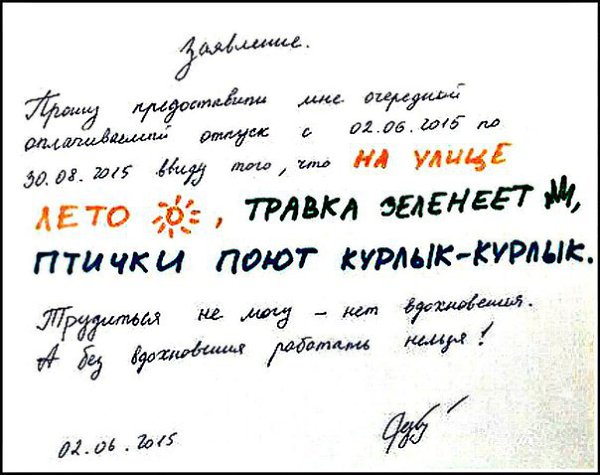 Заявление.
Прошу предоставить мне очередной
оплачиваемый отпуск с 02.06.2015 по
30.08.2015 ввиду того, что НА УЛИЦЕ
ЛЕТО , ТРАВКА ЗЕЛЕНЕЕТ ,
ПТИЧКИ ПОЮТ КУРЛЫК-КУРЛЫК.
Трудиться не могу – нет вдохновения.
А без вдохновения работать нельзя!
02.06.2015